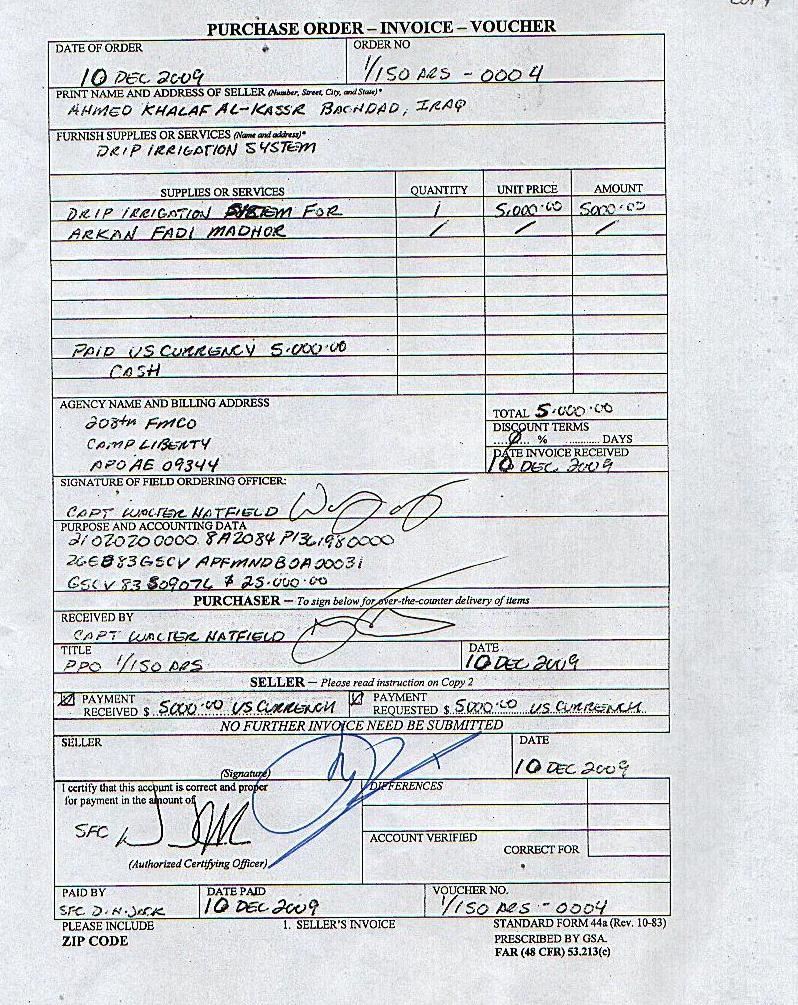 COPY
PURCHASE ORDER – INVOICE – VOUCHER
DATE OF ORDER
ORDER NO
10 DEC 2009
1/150 ARS - 0004
PRINT NAME AND ADDRESS OF SELLER (Number, Street, City, and State)*
AHMED KHALAF AL-KASSR BAGHDAD, IRAQ
FURNISH SUPPLIES OR SERVICES (Name and address)*
DRIP IRRIGATION SYSTEM
SUPPLIES OR SERVICES QUANTITY UNIT PRICE AMOUNT
DRIP IRRIGATION SYSTEM FOR 1 5,000.00 5000.00
ARKAN FADI MADHOR / / /
PAID US CURRENCY 5.000.00
CASH
AGENCY NAME AND BILLING ADDRESS
208th FMCO
CAMP LIBERTY
APO AE 09344
TOTAL 5.000.00
DISCOUNT TERMS
0 % DAYS
DATE INVOICE RECEIVED
10 DEC 2009
SIGNATURE OF FIELD ORDERING OFFICER:
CAPT WALTER HATFIELD
PURPOSE AND ACCOUNTING DATA
21020200000 8A2084 P131980000
26EB83GSCV APFMNDBOA00031
GSCV 83 S09076 $ 25.000.00
PURCHASER – To sign below for over-the-counter delivery of items
RECEIVED BY
CAPT WALTER HATFIELD
TITLE
PPO 1/150 ARS
DATE
10 DEC 2009
SELLER – Please read instruction on Copy 2
PAYMENT RECEIVED $ 5000.00 US CURRENCY
PAYMENT REQUESTED $ 5000.00 US CURRENCY
NO FURTHER INVOICE NEED BE SUBMITTED
SELLER
(Signature)
DATE
10 DEC 2009
I certify that this account is correct and proper
for payment in the amount of
SFC
(Authorized Certifying Officer)
DIFFERENCES
ACCOUNT VERIFIED
CORRECT FOR
PAID BY
SFC D.N.
DATE PAID
10 DEC 2009
VOUCHER NO.
1/150 ARS - 0004
PLEASE INCLUDE
ZIP CODE
1. SELLER'S INVOICE
STANDARD FORM 44a (Rev. 10-83)
PRESCRIBED BY GSA.
FAR (48 CFR) 53.213(c)